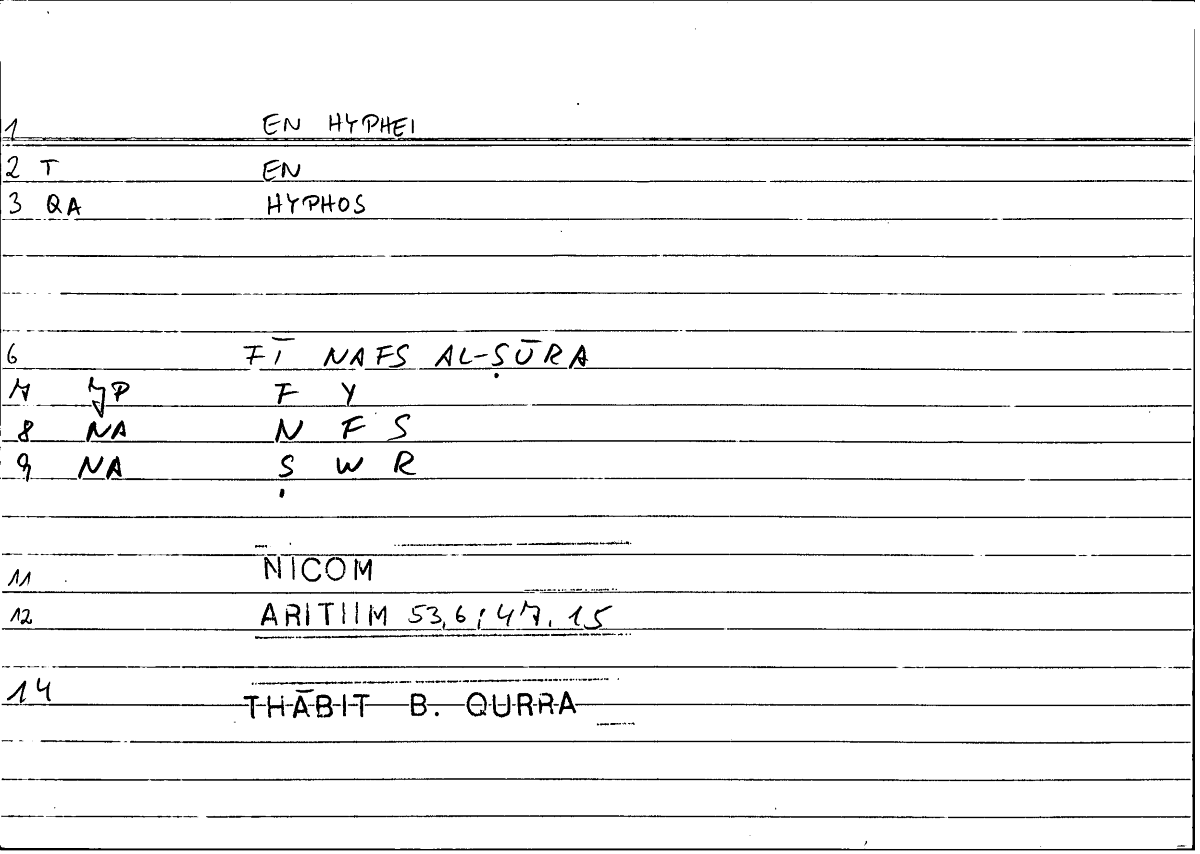 1 EN HYPHEI
2 T EN
3 QA HYPHOS
6 FĪ NAFS AL-ṢŪRA
7 JP F Y
8 NA N F S
9 NA Ṣ W R
11 NICOM
12 ARITIIM 53,6; 47.15
14 THĀBIT B. QURRA